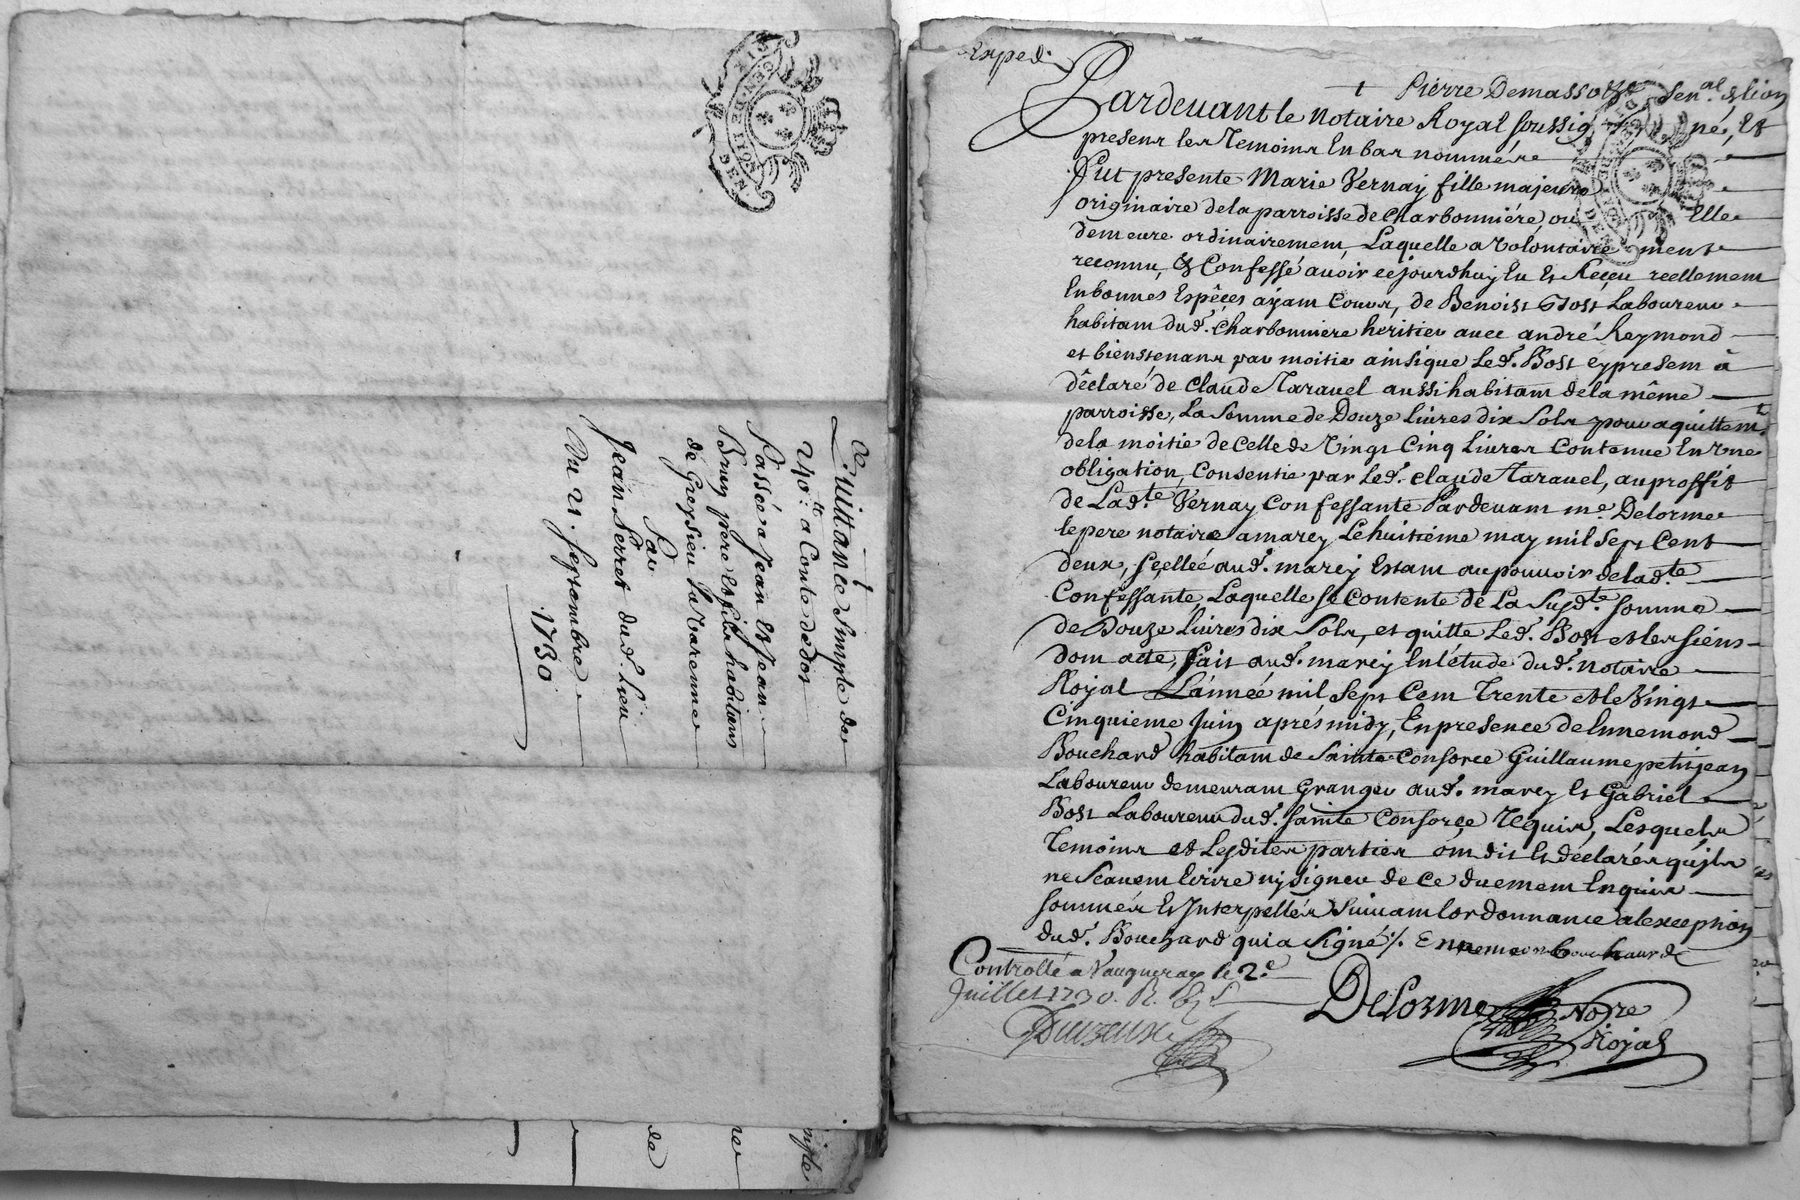 Quittance simple de
40.tt a Conte de dot
Passée a Jean Et Jean
Bruy père Et fils habitans
de Greysieu La Varenne
Par
Jean Ferret dud. Lieu
Du 21. septembre
1730
GEN. DE LION
Exped.
Pierre Demasso Sen.al de Lion
Pardevant le Notaire Royal soussigné, Et
presens les Temoins En bas nommés
Fut presente Marie Vernay fille majeure
originaire de la parroisse de Charbonniére, ou Elle
demeure ordinairement, Laquelle a volontairement
reconnu, Et Confessé avoir cejourdhuy Eu Et Reçeu reellement
En bonnes Espêces ayam Cours, de Benoist Bost Laboureur
habitam dud. Charbonniere heritier avec andré Reymond
et bienstenans par moitie ainsique Led. Bost cy presem à
déclaré de Claude Taravel aussi habitam de la même
parroisse, La Somme de Douze Livres dix Sols pour aquittemt
de la moitie de Celle de Vingt Cinq Livres Contenue En Une
obligation, Consentie par Led. Claude Taravel, au proffit
de Lad.te Vernay Confessante Pardevam me. Delorme
le pere notaire a marcy Le huitième may mil Sept Cent
deux, sçellée aud. marcy Estam au pouvoir de lad.te
Confessante, Laquelle se Contente de La Susd.te somme
de Douze Livres dix Sols, et quitte Led. Bost et les siens
dom acte, fait aud. marcy En l'étude dud. notaire
Royal L'année mil Sept Cem Trente et le Vingt
Cinquieme Juin aprés midy, En presence de Ennemond
Bouchard habitam de Sainte Consorce Guillaume petitjean
Laboureur demeuram Granger aud. marcy Et Gabriel
Bost Laboureur dud. Sainte Consorçe Requis, Lesquels
Temoins et Lesdites parties om dit Et déclarés qu'ils
ne Scavem Ecrire ny Signer de Ce duement Enquis
sommés Et Interpellés Suivam lordonnance alexception
dud. Bouchard qui a signé /. Ennemon bouchaurd
Controllé a Vaugneray le 2.e
Juillet 1730. R.
Delorme Nore
Royal